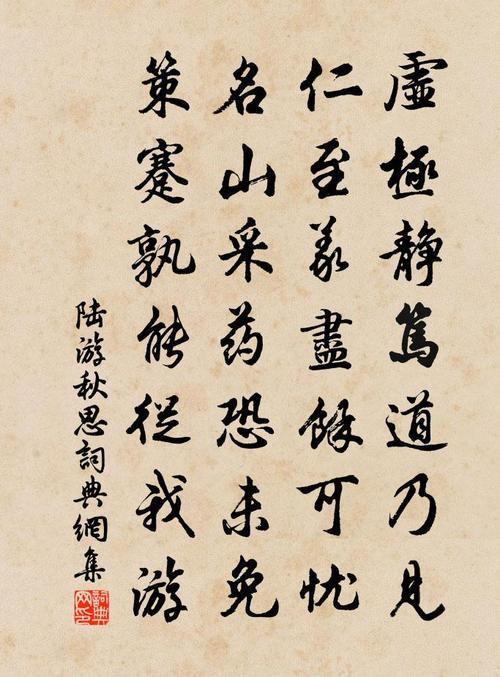 虛極静篤道乃見
仁至義盡餘可忧
名山采药恐未免
策蹇孰能從我游
陸游秋思詞典網集
詞典网印